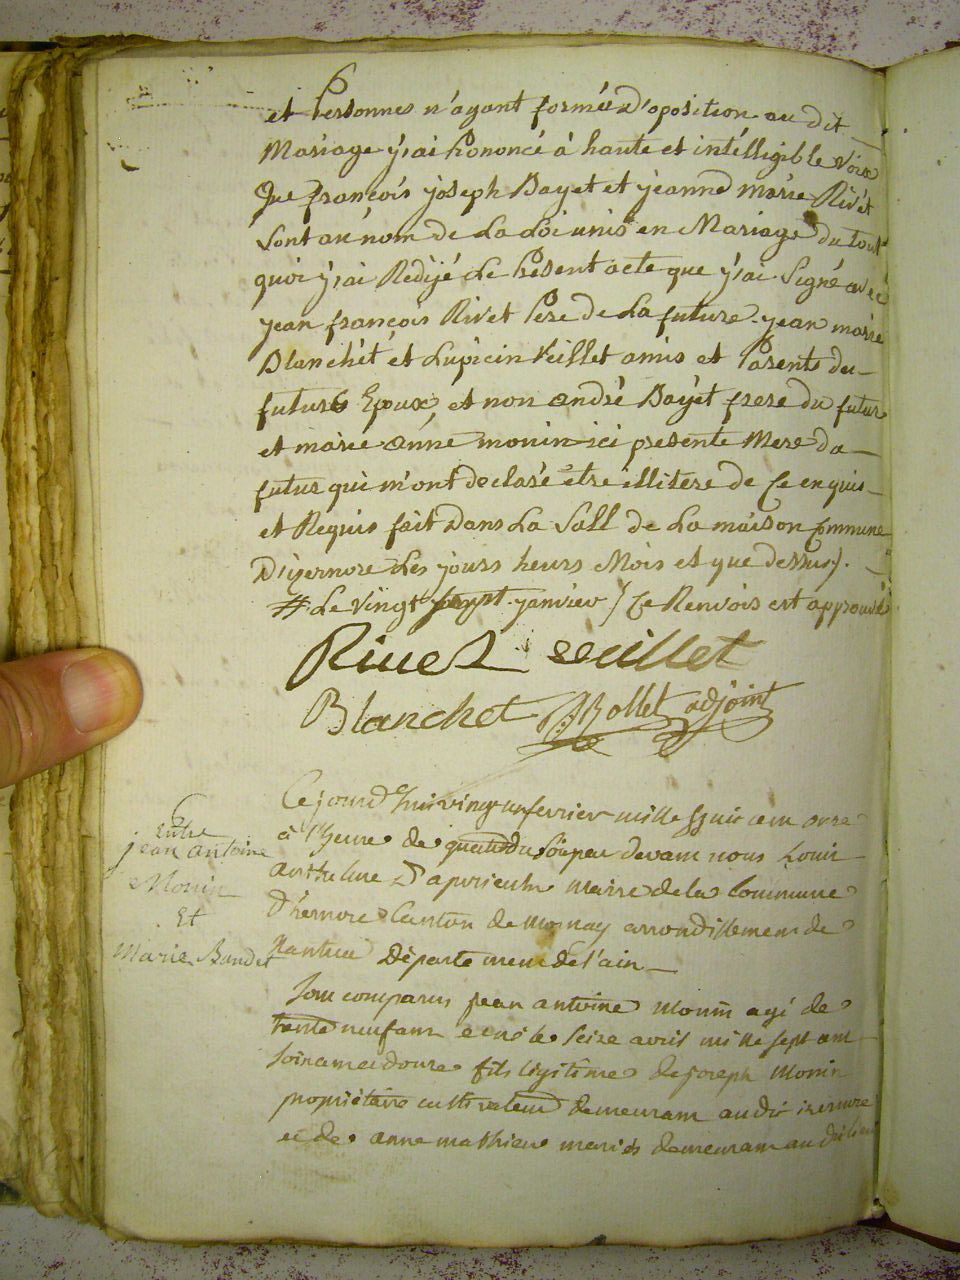 6
et Personnes n'ayant formée d'oposition au dit
Mariage j'ai Prononcé à haute et intélligible voix
Que françois joseph Bayet et jeanne marie Rivét
Sont au nom de La Loi unis en Mariage du tout
quoi j'ai Redijé Le Présent acte que j'ai Signé avec
jean françois Rivet Pere de La future jean marie
Blanchét et Lupicin Veillet amis et Parents du
futurs Epoux, et non andré Bayét frere du futur
et marie anne monin ici presente Mere du
futur qui m'ont declaré etre illitere de Ce enquis
et Requis fait Dans La Sall de La maison Commune
D'izernore Les jours heurs Mois et que dessus
# Le vingt janvier Ce Renvois est approuvé
Rivet veillet
Blanchet Rollet adjoint
Ce jourd'hui vingt un fevrier mille huit cent onze
à l'heure de quatre du soir par devant nous Louis
maire de la Commune
D'izernore Canton de mornay arrondissement de
Nantua Département de l'ain
6
Entre
jean Antoine
Monin
Et
Marie Baudet
Sont comparus jean antoine Monin agé de
trente neuf ans e né le Seize avril mille sept cent
soixante et douze fils légitime de joseph Monin
propriétaire cultivateur demeurant au dit izernore
et de anne mathieu mariés demeurant au dit lieu